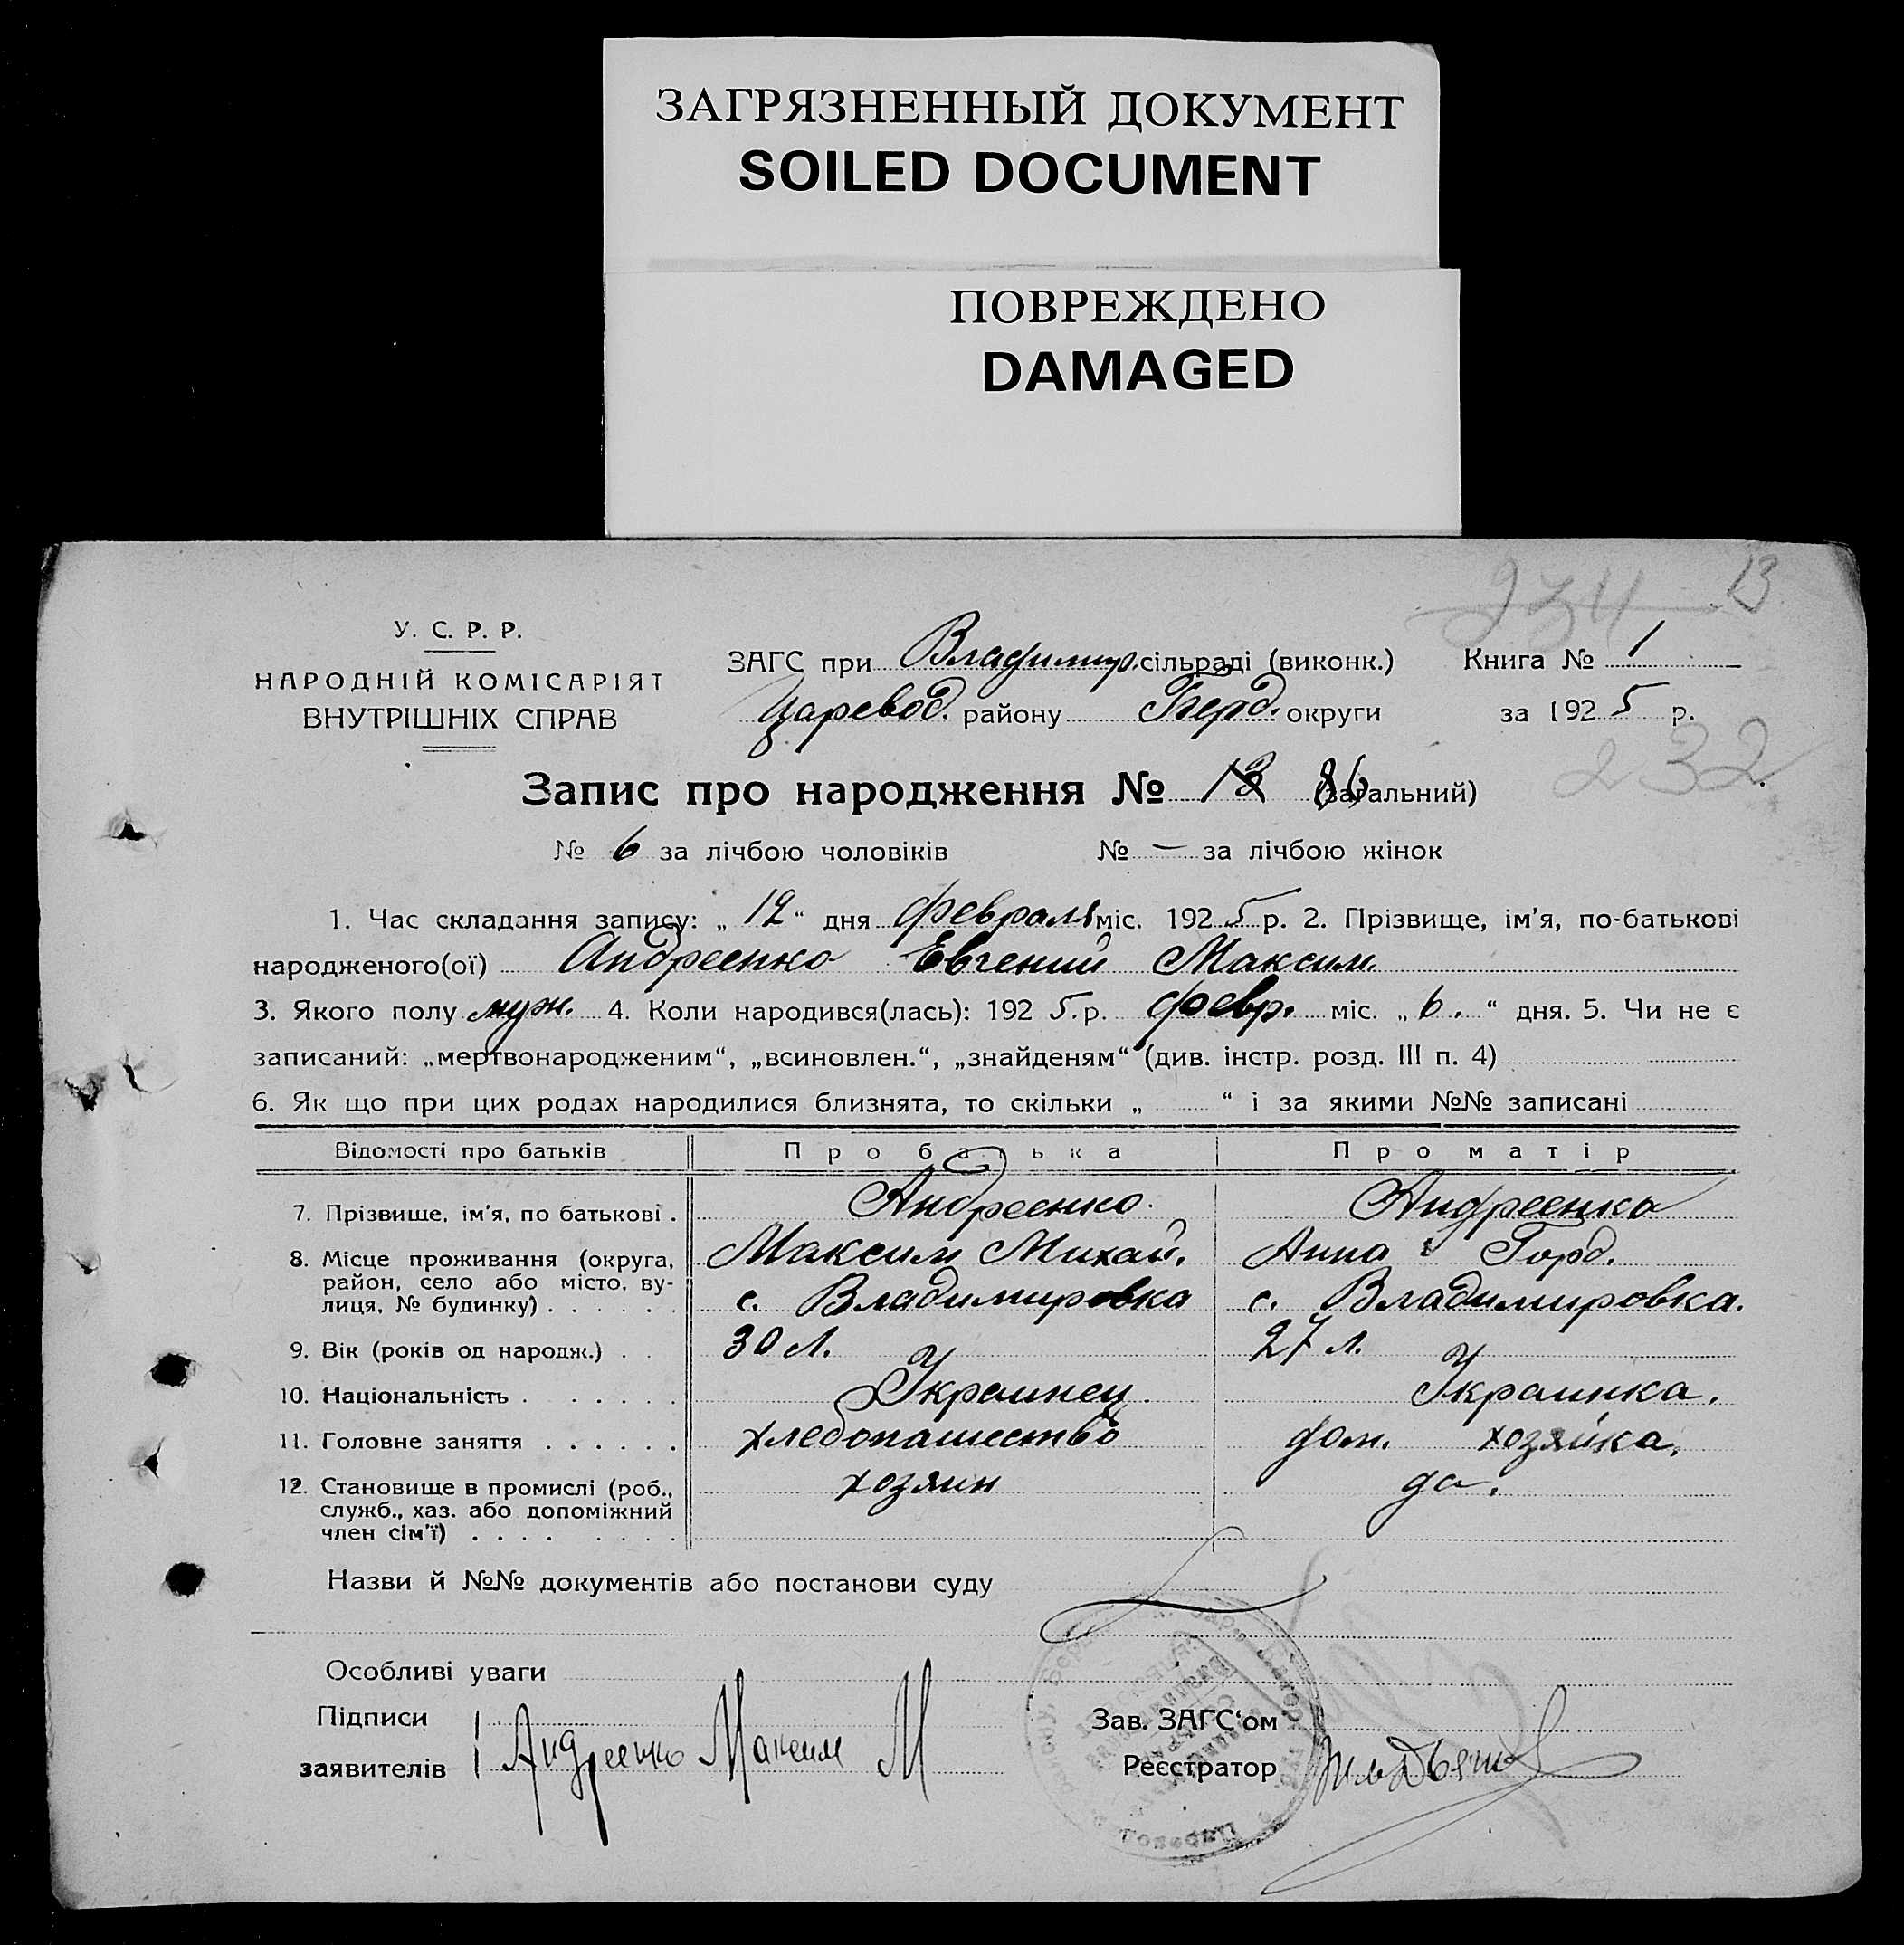 ЗАГРЯЗНЕННЫЙ ДОКУМЕНТ
SOILED DOCUMENT
ПОВРЕЖДЕНО
DAMAGED
234 13
У. С. Р. Р.
НАРОДНІЙ КОМІСАРІЯТ
ВНУТРІШНІХ СПРАВ
ЗАГС при Владимир. сільраді (виконк.) Книга № 1
Царевод. району Берд. округи за 1925 р.
232
Запис про народження № 86 (загальний)
№ 6 за лічбою чоловіків № — за лічбою жінок
1. Час складання запису: „12“ дня февраля міс. 1925 р. 2. Прізвище, ім'я, по-батькові
народженого(ої) Андреенко Евгений Максим.
3. Якого полу муж. 4. Коли народився(лась): 1925. р. февр. міс. „6.“ дня. 5. Чи не є
записаний: „мертвонародженим“, „всиновлен.“, „знайденям“ (див. інстр. розд. III п. 4)
6. Як що при цих родах народилися близнята, то скільки „ “ і за якими №№ записані
Відомості про батьків Про батька Про матір
7. Прізвище, ім'я, по батькові . Андреенко. Андреенко
8. Місце проживання (округа, Максим Михай. Анна Горд.
район, село або місто, ву-
лиця, № будинку) . . . . . . с. Владимировка с. Владимировка.
9. Вік (років од народж.) . . 30 л. 27 л.
10. Національність . . . . . . Украинец. Украинка.
11. Головне заняття . . . . . . хлебопашество дом. хозяйка.
12. Становище в промислі (роб., хозяин да.
служб., хаз. або допоміжний
член сім'ї) . . . . . . . .
Назви й №№ документів або постанови суду
Особливі уваги
Підписи
заявителів Андреенко Максим М
Зав. ЗАГС‘ом
Реєстратор